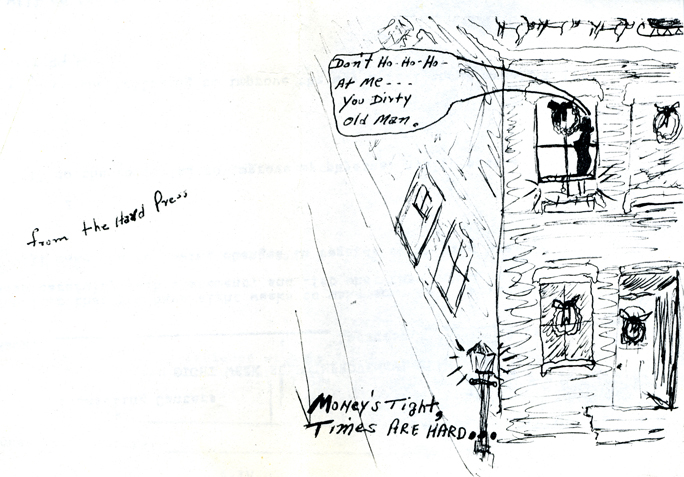 Don't Ho-Ho-Ho-
At Me---
You Dirty
Old Man.
from the Hard Press
Money's Tight,
Times ARE HARD...